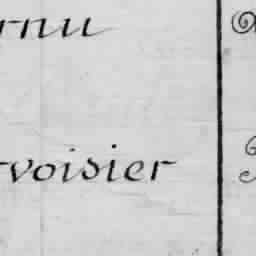 rnu
rvoisier